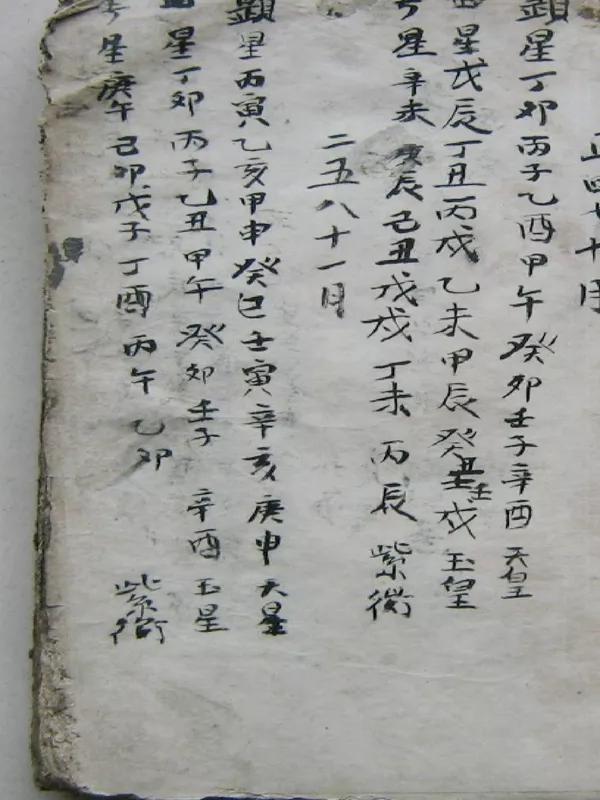 正四七十月
顕星丁卯丙子乙酉甲午癸卯壬子辛酉 天皇
星戊辰丁丑丙戌乙未甲辰癸丑壬戌 玉皇
星辛未庚辰己丑戊戌丁未丙辰 紫微
二五八十一月
顕星丙寅乙亥甲申癸巳壬寅辛亥庚申 天星
星丁卯丙子乙丑甲午癸卯壬子 辛酉 玉星
星庚午己卯戊子丁酉丙午乙卯 紫